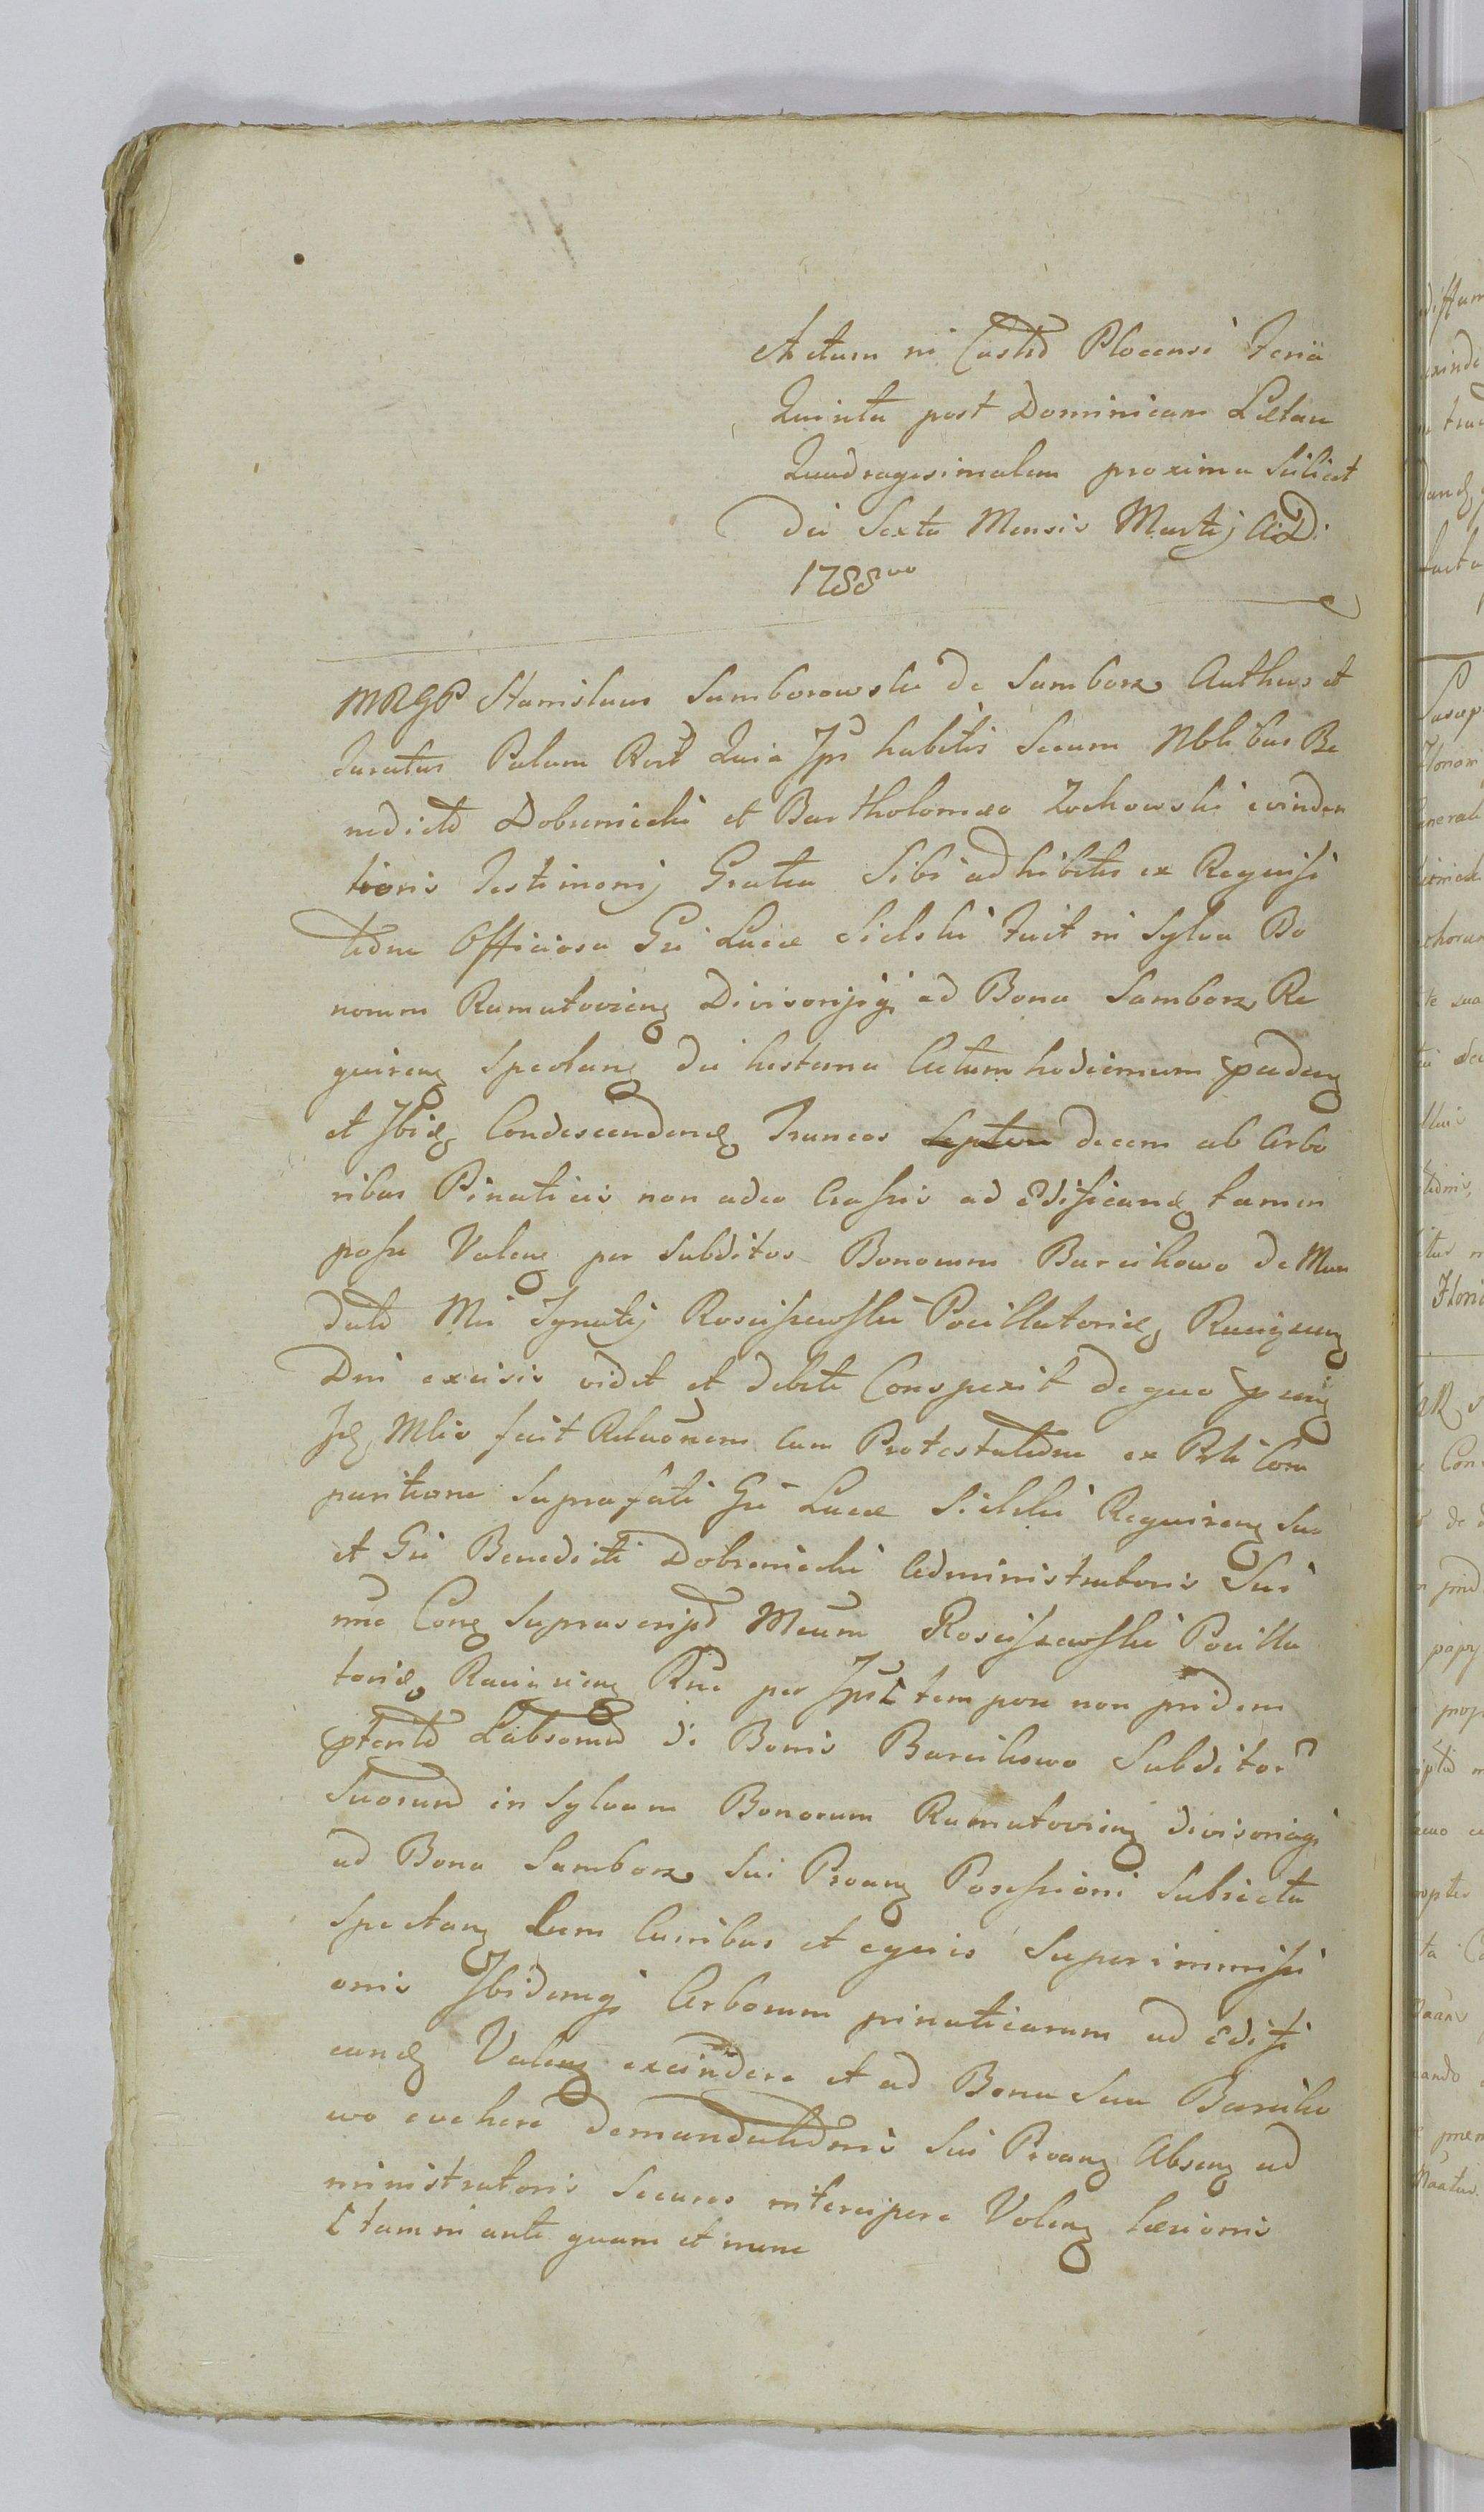 Actum in Castro Plocensi Feria
Quinta post Dominicam Lætare
Quadragesimalem proxima Scilicet
die Sexta Mensis Martij A. D.
1788vo
MRGP Stanislaus Samborowski de Samborz Authus et
Juratus Palam Rect Quia Ips habitis Secum Nblibus Be
nedicto Dobrzniecki et Bartholomæo Zochowski eviden
tioris Testimonij Gratia Sibi adhibitis ex Requisi
tione Officiosa Gsi Lucæ Sielski Fuit in Sylva Bo
norum Ramutovien Divisorijq ad Bona Samborz Re
quiren Spectan die hesterna Actum hodiernum
et Ibiq Condescenden Truncos decem ab Arbo
ribus Pinaticis non adeo Crassis ad Ædificand tamen
posse Valen per Subditos Bonorum Barcikowo de Man
dato Mci Ignatij Rosciszewski Pocillatorid Raciązien
Dni excisis vidit et debite Conspexit de quo
Mlis fecit Relaonem Cum Protestatione ex Com
paritione Suprafati Gsi Lucæ Sielski Requiren Suo
et Gsi Benedicti Dobrzniecki Administratoris Sui
nne Con Suprascript Mcum Rosciszewski Pocilla
torid Raciązien per tempore non pridem
de Bonis Barcikowo Subditor
Suorum in Sylvam Bonorum Ramutovien divisorioq
ad Bona Samborz Sui Proan Possessioni Subiecta
Spectan Cum Curribus et equis Superimmissi
onis Ibidemq Arborum pinaticarum ad Ædifi
cand Valen excindere et ad Bona Sua Barciko
wo evehere demandationis Sui Proan Absen ad
ministratoris Secures intercipere Volen læsionis
tam in ante quam et nunc